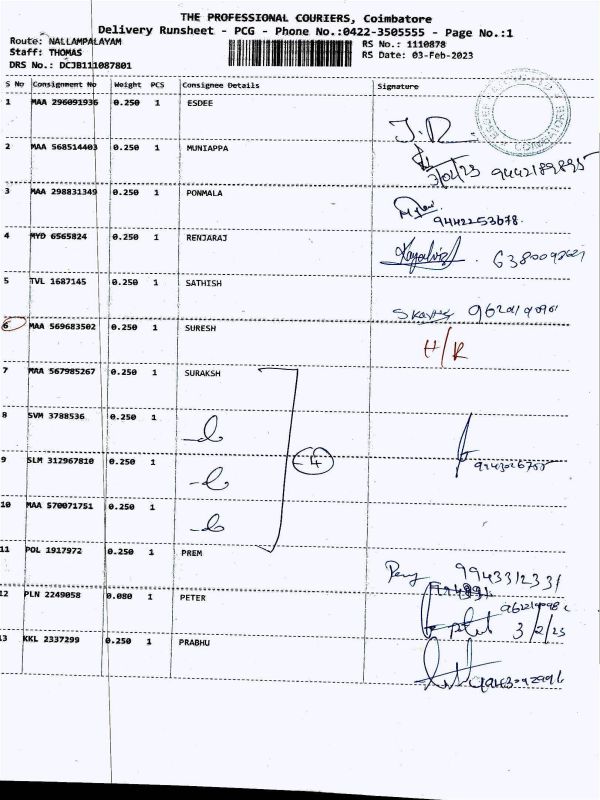 THE PROFESSIONAL COURIERS, Coimbatore
Delivery Runsheet - PCG - Phone No.:0422-3505555 - Page No.:1
Route: NALLAMPALAYAM
RS No.: 1110878
Staff: THOMAS
RS Date: 03-Feb-2023
DRS No.: DCJB111087801
S No Consignment No Weight PCS Consignee Details Signature
1 MAA 296091936 0.250 1 ESDEE
2 MAA 568514403 0.250 1 MUNIAPPA
3/02/23 9442189895
3 MAA 298831349 0.250 1 PONMALA
9442253678.
4 MYD 6565824 0.250 1 RENJARAJ
5 TVL 1687145 0.250 1 SATHISH
6 MAA 569683502 0.250 1 SURESH
H/R
7 MAA 567985267 0.250 1 SURAKSH
8 SVM 3788536 0.250 1
4
9 SLM 312967810 0.250 1
10 MAA 570071751 0.250 1
11 POL 1917972 0.250 1 PREM
9943312331
12 PLN 2249058 0.080 1 PETER
3/2/23
13 KKL 2337299 0.250 1 PRABHU